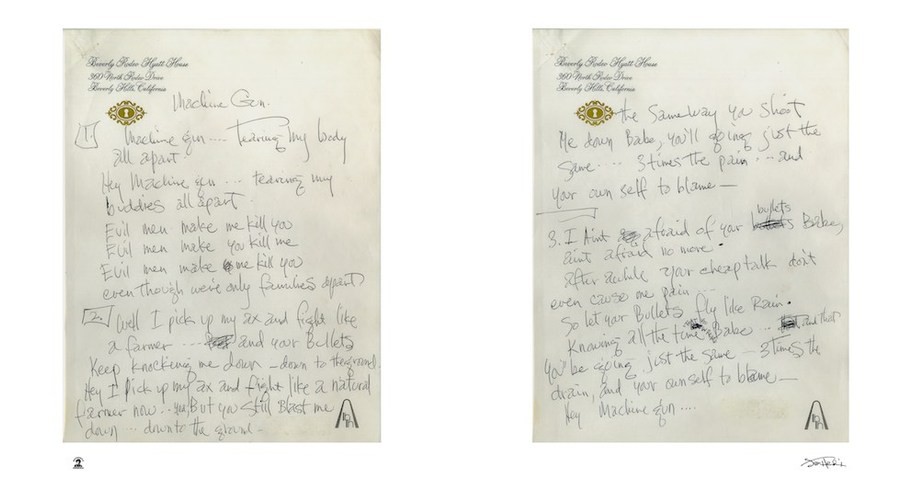 Beverly Rodeo Hyatt House
360 North Rodeo Drive
Beverly Hills, California
Machine Gun.
1 Machine gun .... Tearing My body
all apart.
Hey Machine gun .... tearing my
buddies all apart
Evil men make me kill you
Evil men make you kill me
Evil men make me kill you
even though we're only families apart)
2 Well I pick up my ax and fight like
a farmer .... and your Bullets
Keep knocking me down - down to the ground
Hey I pick up my ax and fight like a natural
farmer now .. But you still Blast me
down ... down to the ground -
Beverly Rodeo Hyatt House
360 North Rodeo Drive
Beverly Hills, California
the Same way you shoot
Me down Babe, you'll going just the
same .... 3 times the pain .... and
your own self to blame —
3. I Aint afraid of your bullets Babe,
aint afraid no more.
after awhile your cheap talk don't
even cause me pain ...
So let your Bullets fly like Rain.
Knowing all the time Babe ... and that
You'll be going just the same — 3 Times the
drain, and your own self to blame —
Hey Machine gun ....